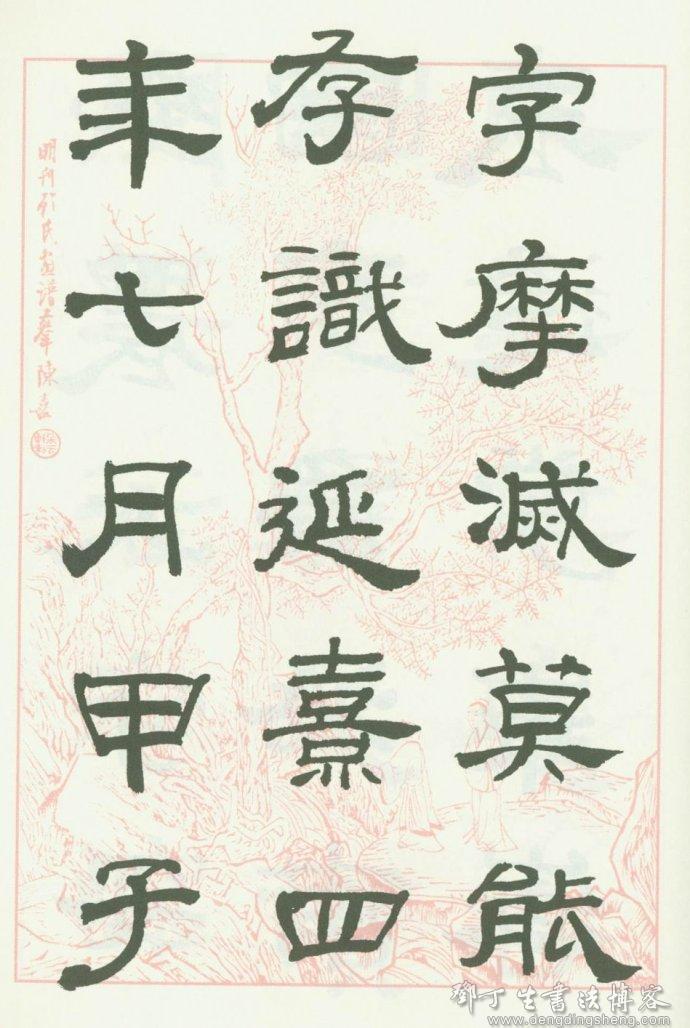 字摩滅莫能
存識延熹四
年七月甲子
明刊氏畫譜摹陳
鄧丁生書法博客
www.dengdingsheng.com